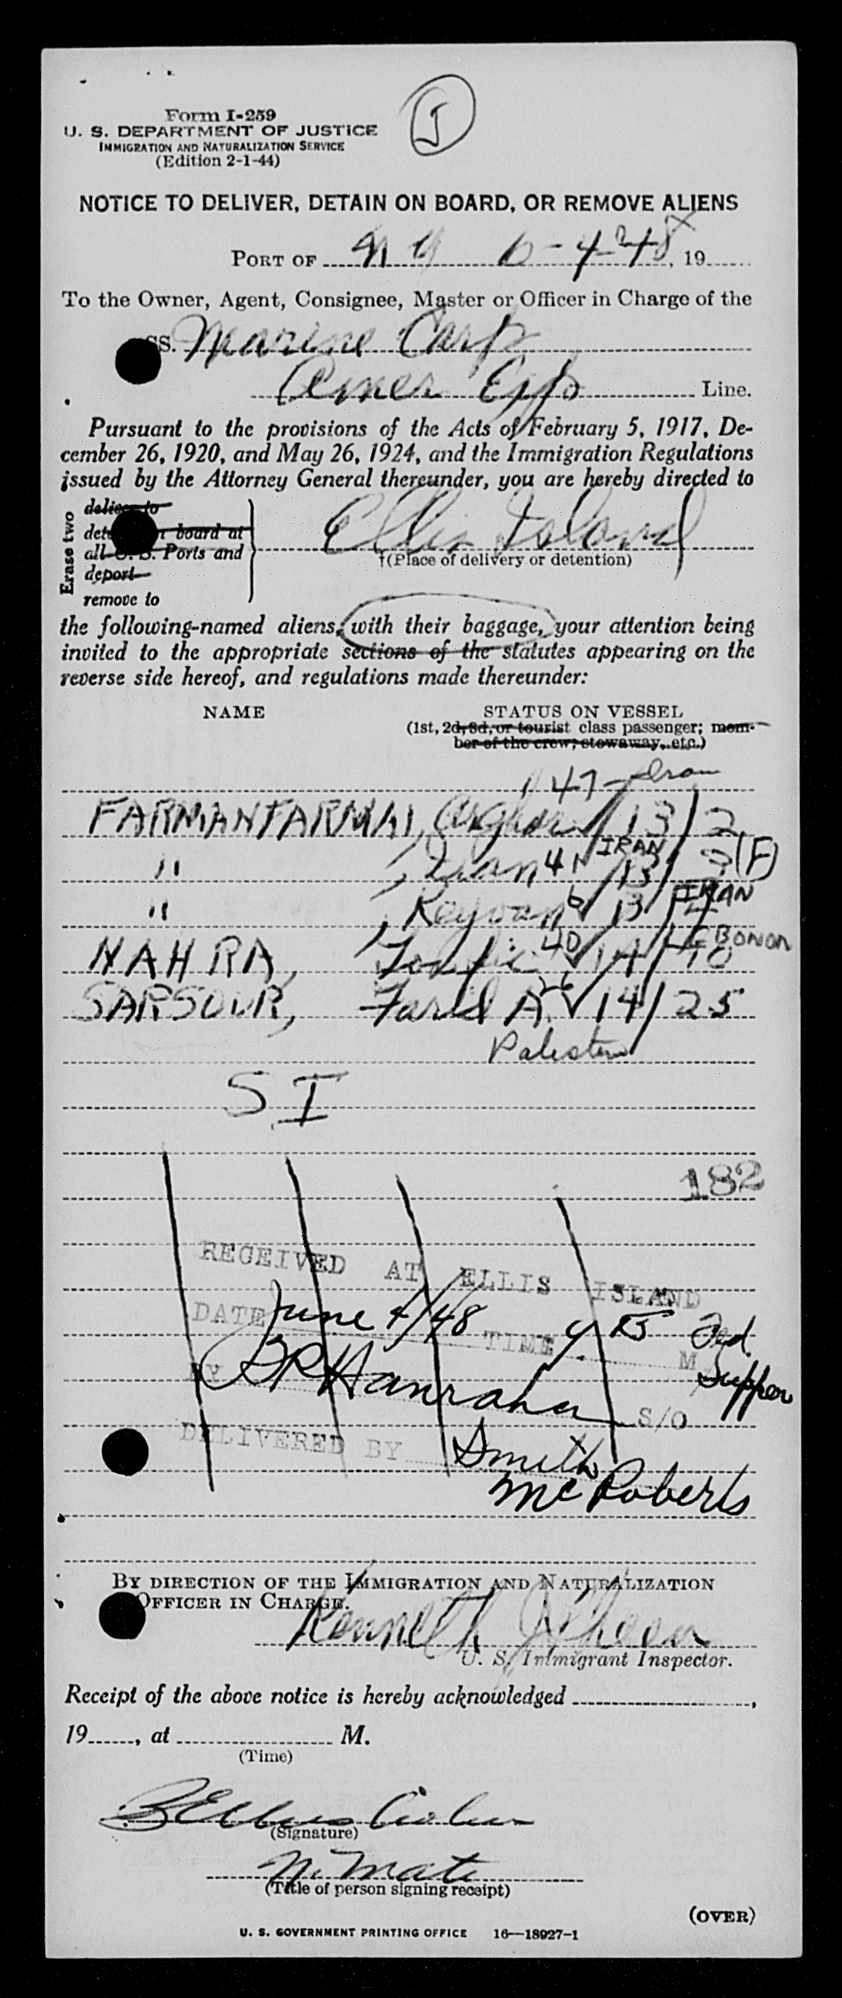 J
Form I-259
U. S. DEPARTMENT OF JUSTICE
IMMIGRATION AND NATURALIZATION SERVICE
(Edition 2-1-44)
NOTICE TO DELIVER, DETAIN ON BOARD, OR REMOVE ALIENS
PORT OF N Y 6-4-48, 19
To the Owner, Agent, Consignee, Master or Officer in Charge of the
SS. Marine Carp
Amer Exp Line.
Pursuant to the provisions of the Acts of February 5, 1917, De-
cember 26, 1920, and May 26, 1924, and the Immigration Regulations
issued by the Attorney General thereunder, you are hereby directed to
Erase two
deliver to
board at
all U. S. Ports and
deport
remove to
Ellis Island
†(Place of delivery or detention)
the following-named aliens, with their baggage, your attention being
invited to the appropriate sections of the statutes appearing on the
reverse side hereof, and regulations made thereunder:
NAME STATUS ON VESSEL
(1st, 2d, 3d, or tourist class passenger; mem-
ber of the crew, stowaway, etc.)
47 - Iran
FARMANFARMAI, 13/2
" , 41 IRAN 13/3 (F)
" , Keyvan 6 13/4 IRAN
NAHRA, Toufic 40 14/10 LEBONON
SARSOUR, Farid A. 14/25
Palestine
S I
182
RECEIVED AT ELLIS ISLAND
DATE June 4/48 TIME 4 55 M
Fed Supper
BY Hanrahan S/O
DELIVERED BY Smith
McRoberts
BY DIRECTION OF THE IMMIGRATION AND NATURALIZATION
OFFICER IN CHARGE.
Kenneth
U. S. Immigrant Inspector.
Receipt of the above notice is hereby acknowledged ,
19 , at M.
(Time)
(Signature)
(Title of person signing receipt)
(OVER)
U. S. GOVERNMENT PRINTING OFFICE 16—18927-1